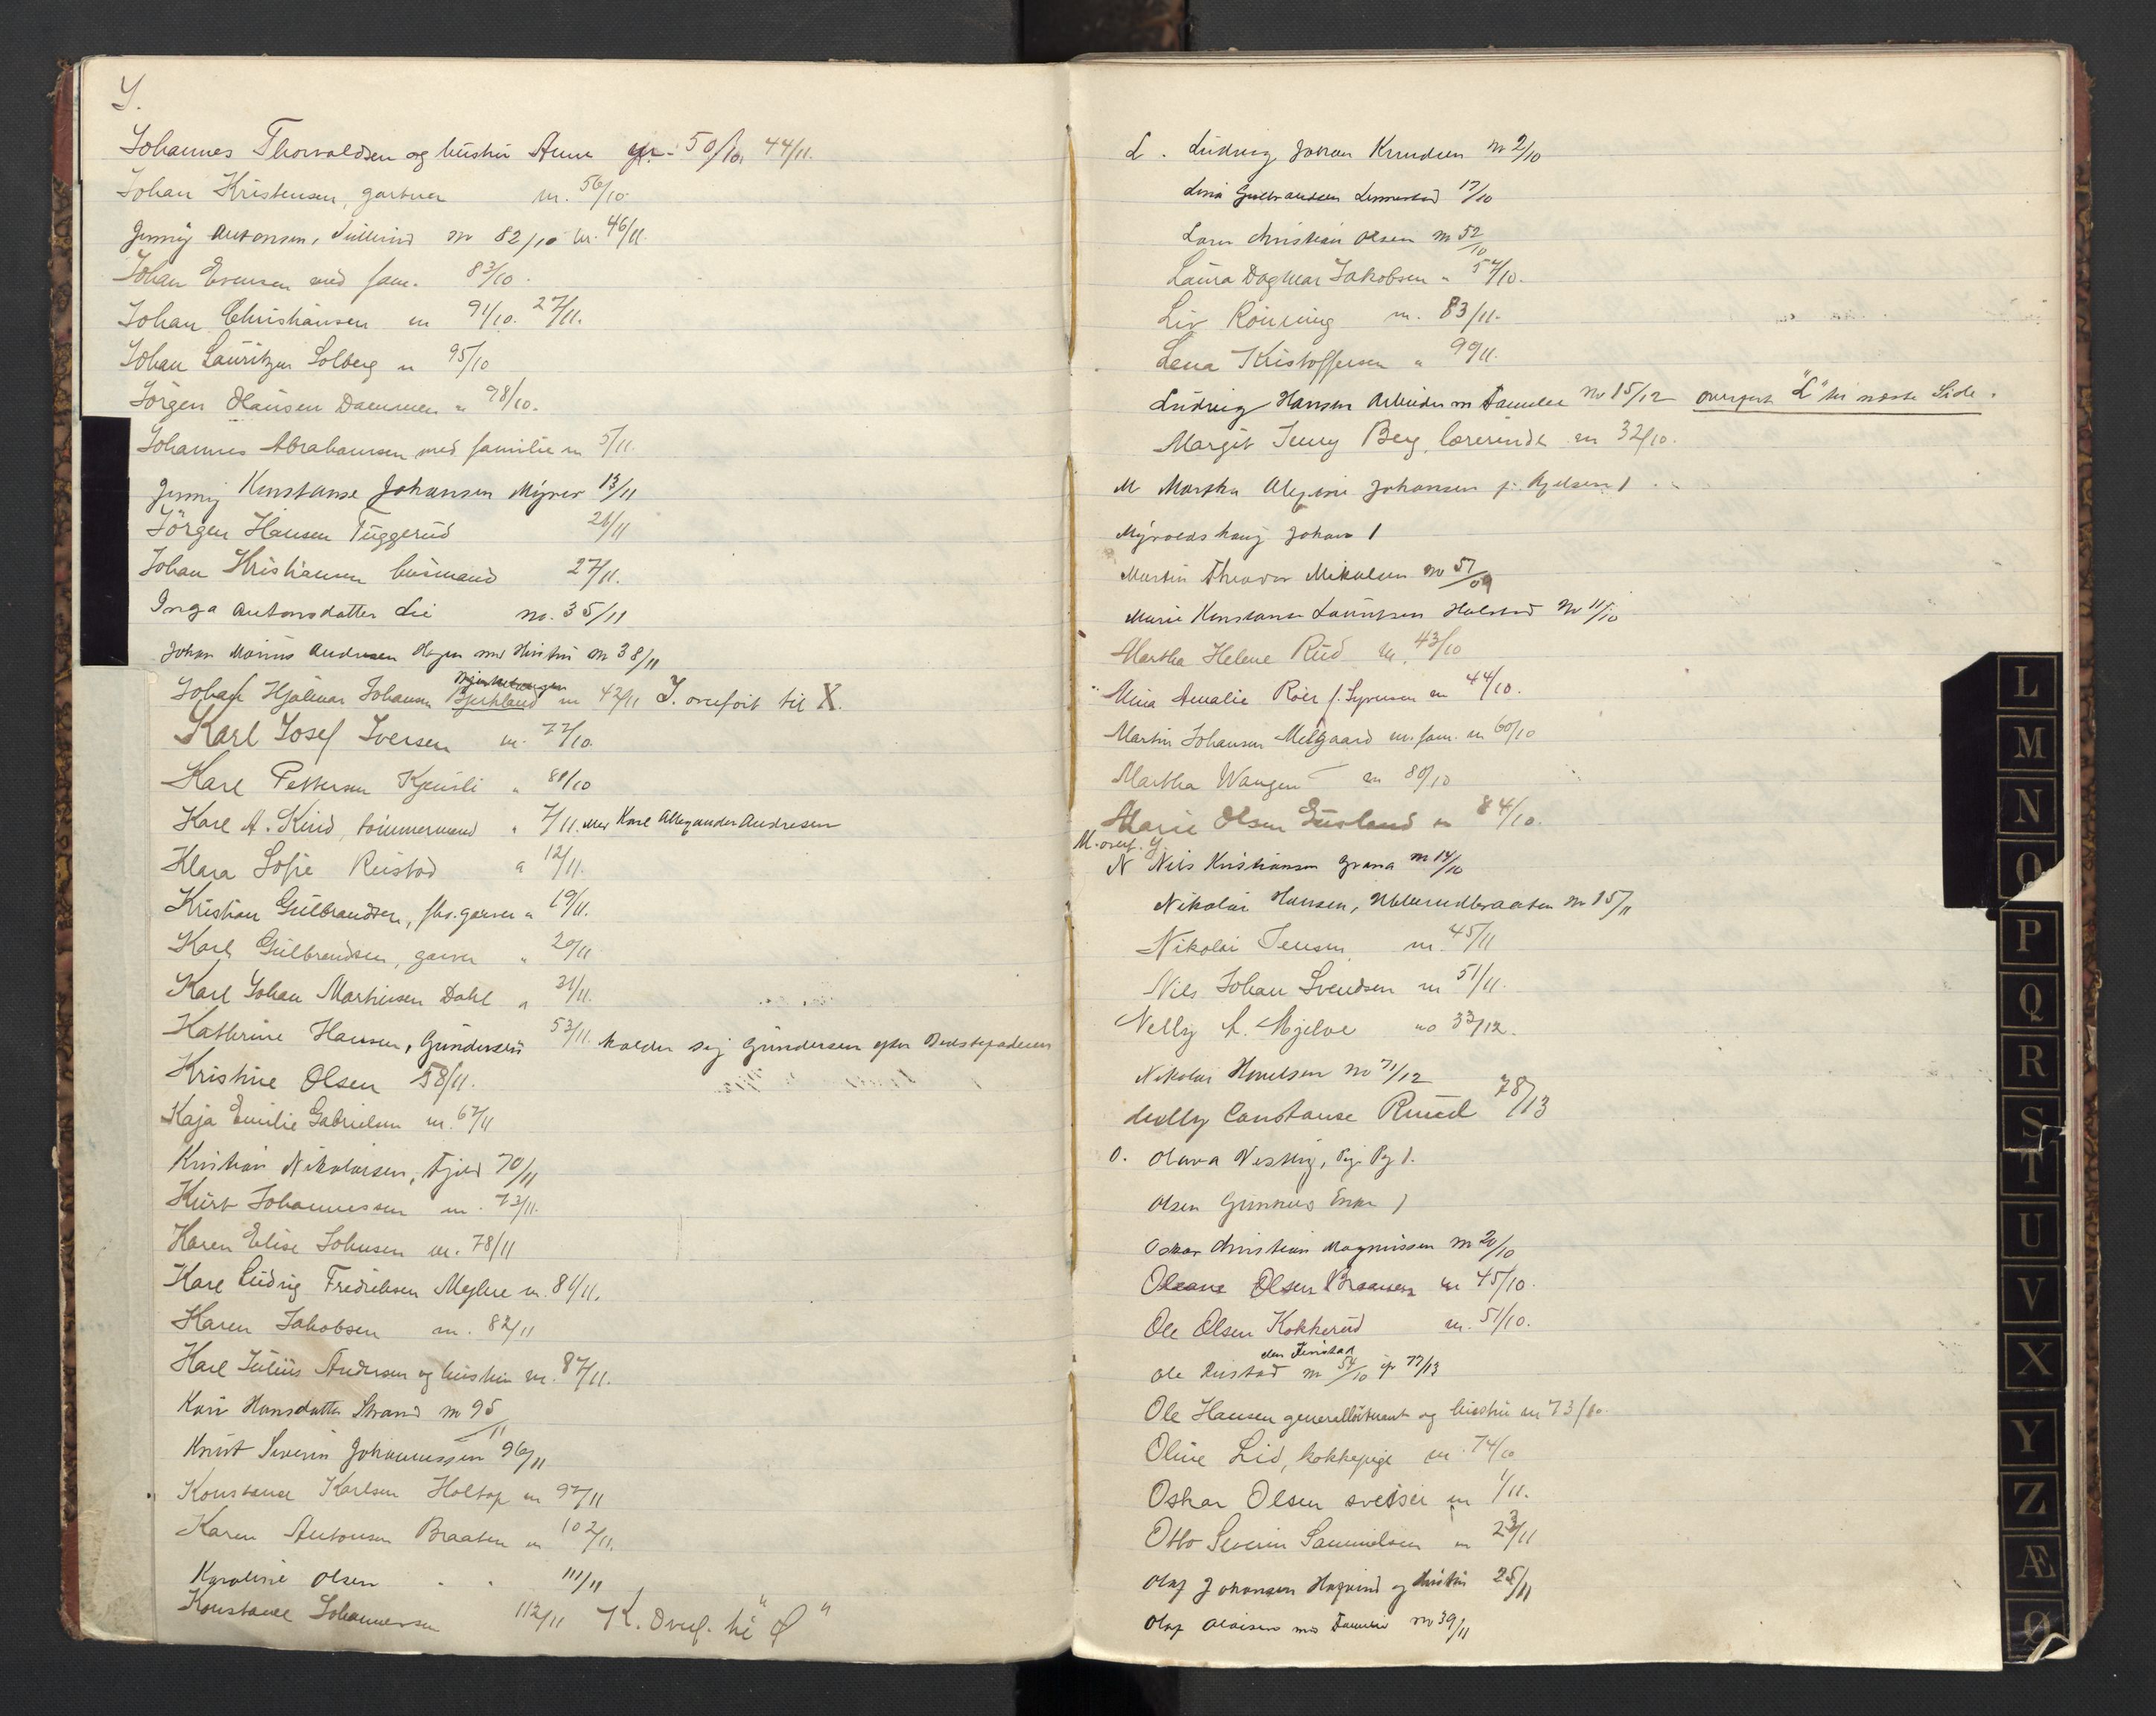 Y.
Johannes Thorvaldsen og hustru Anne 50/10. 44/11.
Johan Kristensen, gartner nr. 56/10
Jenny Antonsen, Tullerud nr 82/10 nr. 46/11.
Johan Evensen med fam. 83/10.
Johan Christiansen nr 91/10. 27/11.
Johan Lauritzen Solberg nr 95/10
Jörgen Hansen Dammen " 98/10.
Johannes Abrahamsen med familie nr 5/11.
Jenny Konstanse Johansen Myrer 13/11
Jörgen Hansen Tuggerud 21/11
Johan Kristiansen husmand 27/11.
Inga Antonsdatter Lie no. 35/11
Johan Marius Andresen Hagen med Hustru nr 38/11
Johan Hjalmar Johansen Bjerkland nr 42/11 J. overfört til X.
Karl Josef Iversen nr. 77/10.
Karl Pettersen Kjensli " 81/10
Karl A. Kind, tömmermand " 7/11. Karl Alexander Andresen
Klara Sofie Rustad " 12/11.
Kristian Gulbrandsen, fhv. garver " 19/11.
Karl Gulbrandsen, garver " 20/11
Karl Johan Martinsen Dahl " 31/11.
Kathrine Hansen, Gundersen 53/11. kalder sig Gundersen efter Stedfaderen
Kristine Olsen 58/11.
Kaja Emilie Gabrielsen nr. 67/11
Kristian Nikolaisen, Fjeld 70/11
Kurt Johannessen nr. 73/11.
Karen Elise Johnsen nr. 78/11
Karl Ludvig Fredriksen Myhre nr. 81/11.
Karen Jakobsen nr. 82/11
Karl Julius Andersen og hustru nr. 87/11.
Kari Hansdatter Strand nr 95/11
Knut Severin Johannessen 96/11
Konstanse Karlsen Holtop nr 97/11
Karen Antonsen Braaten nr 102/11.
Karoline Olsen " " 111/11
Konstanse Johannessen 112/11 K. Overf. til "Q"
L. Ludvig Johan Knudsen nr 2/10
Lina Gulbrandsen Lunnestad 17/10
Lars Christian Olsen nr 52/10
Laura Dagmar Jakobsen " 57/10.
Liv Rönning nr. 83/11.
Lena Kristoffersen " 99/11.
Ludvig Hansen Arbeider m Familie Nr 15/12 overfört "L" til næste Side.
Margit Jenny Berg, lærerinde nr 32/10.
M Martha Alexine Johansen f. 1
Myrvoldshaug Johan 1
Martin Theodor Mikalsen nr 51/09
Marie Konstanse Lauritzen Holstad Nr 11/10
Martha Helene Rud nr. 43/10
Mina Amalie Roer f. Syversen nr 44/10.
Martin Johansen Melgaard m. fam. nr 60/10
Martha Wangen nr 80/10
Marie Olsen nr 84/10.
M. overf. Y.
N Nils Kristiansen Grana nr 14/10
Nikolai Hansen, nr 15/11
Nikolai Jensen nr. 45/11
Nils Johan Svendsen nr 51/11.
Nelly A. Mjelve no 33/12.
Nikolai Hovelsen no 71/12
Nelly Constanse Ruud 78/13
O. Olava Vestby, 1.
Olsen Gunnerius Enke 1
Oskar Christian Magnussen nr 20/10
Oleane Olsen Braaten nr 45/10.
Ole Olsen Kokkerud nr. 51/10.
Ole Rustad nr 54/10 77/13
Ole Hansen generallöitnant og hustru nr 73/10.
Oline Lid, kokkepige nr. 74/10
Oskar Olsen sveiser nr 1/11.
Otto Severin Samuelsen nr 23/11
Olaf Johansen og hustru 25/11
Olaf med Familie no 39/11
L
M
N
O
P
Q
R
S
T
U
V
X
Y
Z
Æ
Ø